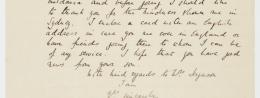 and before going I should like
to thank you for the kindness shown me in
Sydney. I enclose a card with an English
address in case you are ever in England or
have friends going there to whom I can be
of any service. I hope that you have good
news from your son
With kind regards to Mrs
I am